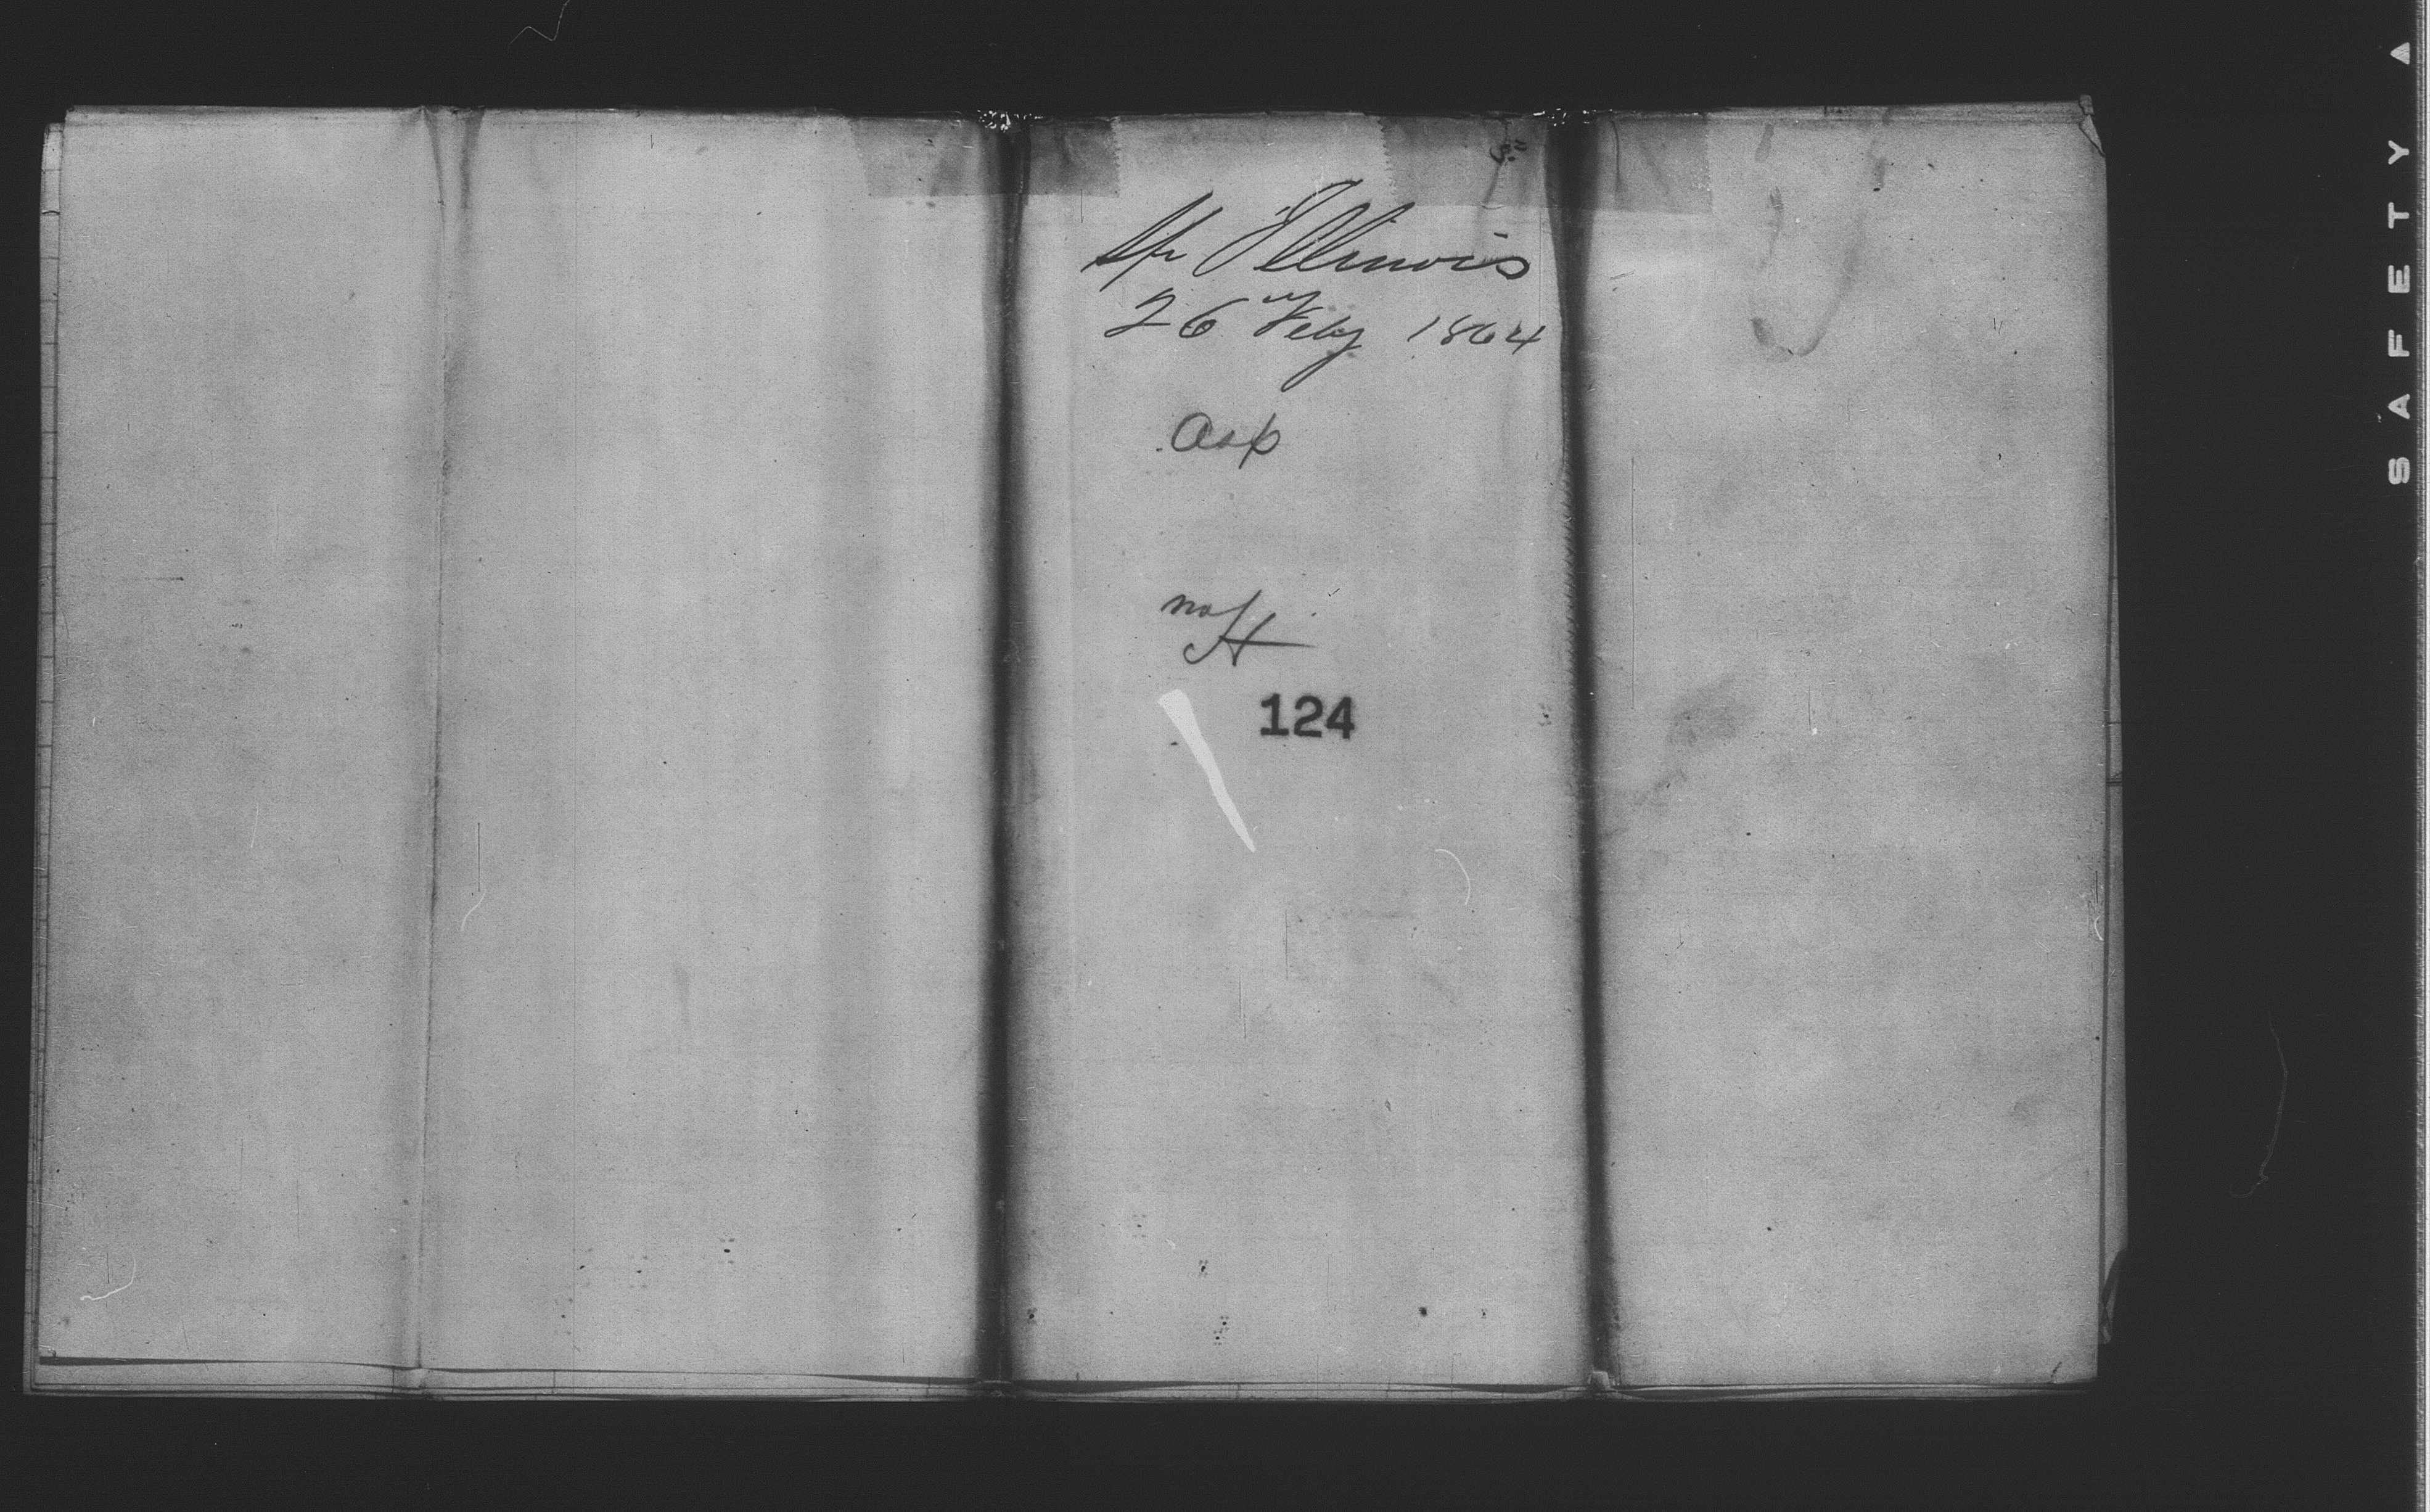 Str Illinois
26" Feby 1864
Asp
no H
124
SAFETY